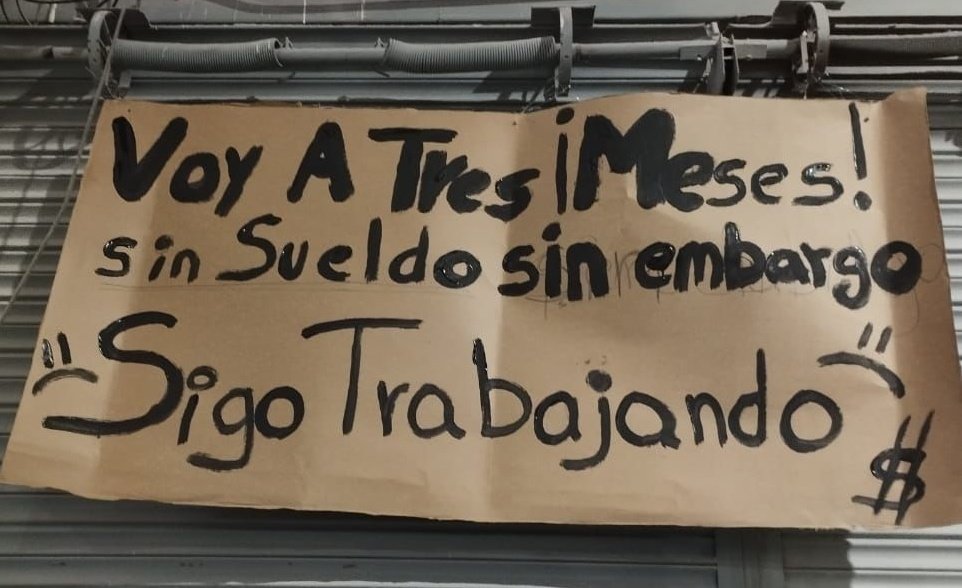 Voy A Tres ¡Meses!
sin Sueldo sin embargo
Sigo Trabajando
$